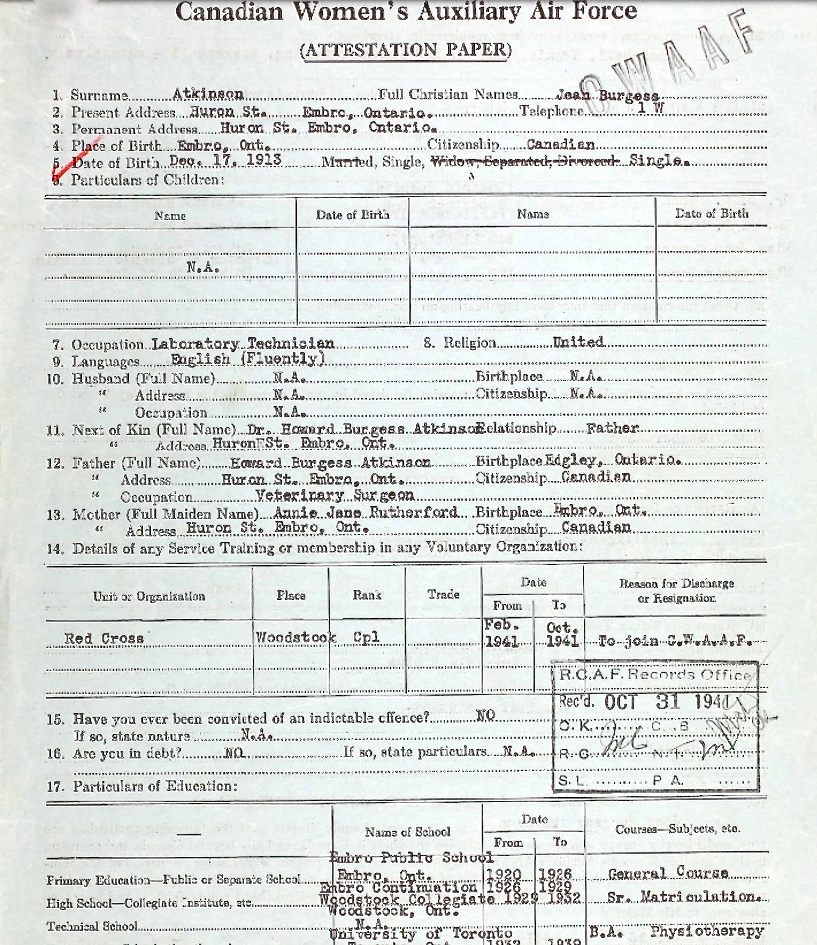 Canadian Women's Auxiliary Air Force
(ATTESTATION PAPER)
C W A A F
1. Surname Atkinson Full Christian Names Jean Burgess
2. Present Address Huron St. Embro, Ontario. Telephone 1 W
3. Permanent Address Huron St. Embro, Ontario.
4. Place of Birth Embro, Ont. Citizenship Canadian
5. Date of Birth Dec. 17, 1913 Married, Single, Widow, Separated, Divorced Single.
6. Particulars of Children:
Name Date of Birth Name Date of Birth
N.A.
7. Occupation Laboratory Technician 8. Religion United
9. Languages English (Fluently)
10. Husband (Full Name) N.A. Birthplace N.A.
" Address N.A. Citizenship N.A.
" Occupation N.A.
11. Next of Kin (Full Name) Dr. Howard Burgess Atkinson Relationship Father
" Address Huron St. Embro, Ont.
12. Father (Full Name) Howard Burgess Atkinson Birthplace Edgley, Ontario.
" Address Huron St. Embro, Ont. Citizenship Canadian
" Occupation Veterinary Surgeon
13. Mother (Full Maiden Name) Annie Jane Rutherford Birthplace Embro, Ont.
" Address Huron St. Embro, Ont. Citizenship Canadian
14. Details of any Service Training or membership in any Voluntary Organization:
Unit or Organization Place Rank Trade Date From To Reason for Discharge or Resignation
Red Cross Woodstock Cpl Feb. 1941 Oct. 1941 To join C.W.A.A.F.
R.C.A.F. Records Office
Rec'd. OCT 31 1941
O.K. C B
R.G. N.T.
S.L. P A
15. Have you ever been convicted of an indictable offence? NO
If so, state nature N.A.
16. Are you in debt? NO If so, state particulars N.A.
17. Particulars of Education:
Name of School Date From To Courses—Subjects, etc.
Embro Public School
Primary Education—Public or Separate School Embro, Ont. 1920 1926 General Course
Embro Continuation 1926 1929
High School—Collegiate Institute, etc. Woodstock Collegiate 1929 1932 Sr. Matriculation.
Woodstock, Ont.
Technical School N.A.
University of Toronto B.A. Physiotherapy
1932 1939